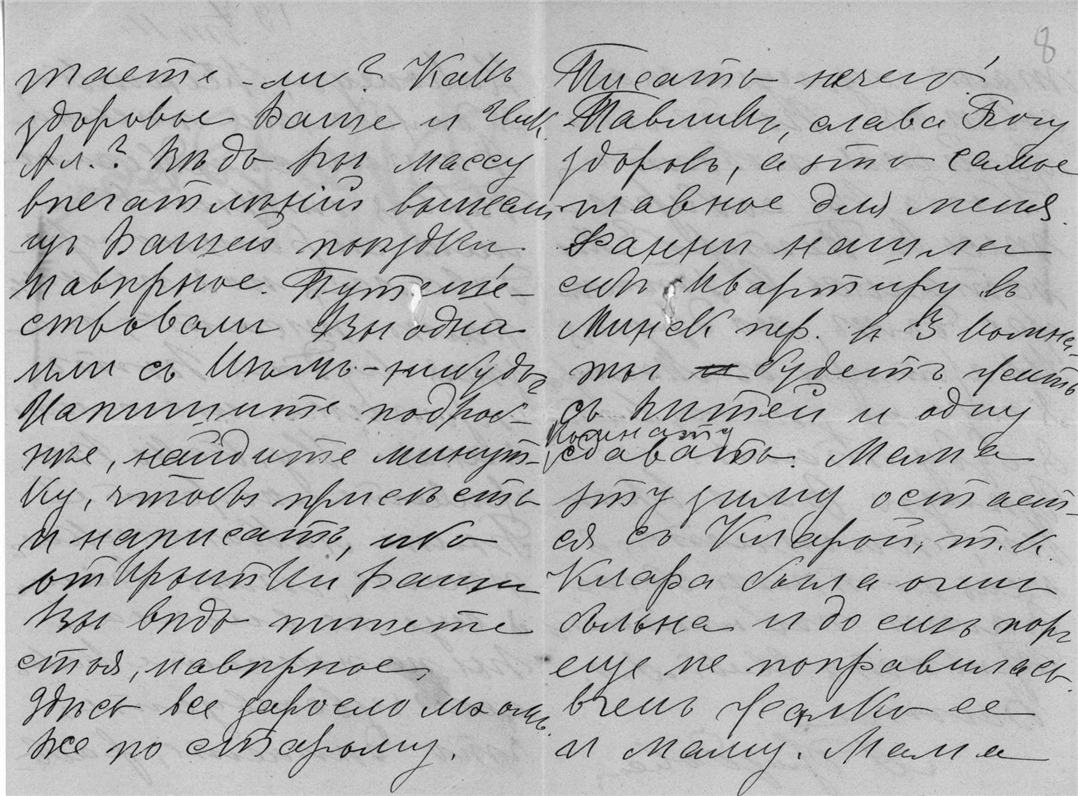 таете-ли? Какъ
здоровье Ваше и Ник.
Ал.? Вѣдь вы массу
впечатлѣній вынесли
изъ Вашей поѣздки
навѣрное. Путеше-
ствовали Вы одна
или съ кѣмъ-нибудь?
Напишите подроб-
нѣе, найдите минут-
ку, чтобы присѣсть
и написать, ибо
открытки Ваши
Вы вѣдь пишете
стоя, навѣрное.
Здѣсь все
же по старому.
8
Писать нечего!
Павликъ, слава Богу
здоровъ, а это самое
главное для меня.
Фанни нашла
себѣ квартиру въ
Минск пер. въ 3 комна-
ты будетъ жить
съ Витей и одну
комнату
сдавать. Мама
эту зиму остает-
ся съ Кларой, т.к.
Клара была очень
больна и до сихъ поръ
еще не поправилась.
Очень жалко ее
и маму. Мама